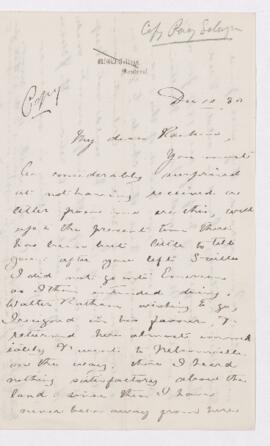 Copy Percy Selwyn
Montreal
Copy
Dec 10 80
My dear
You must
be considerably surprised
at not having received a
letter from me ere this, but
up to the present time there
has been but little to tell
you. After you left
I did not go into
as I then intended doing,
Walter wishing to go,
I resigned in his favour &
returned here almost immed
iately & went to
on the way. There I heard
nothing satisfactory about the
land & since then I have
never been away from here